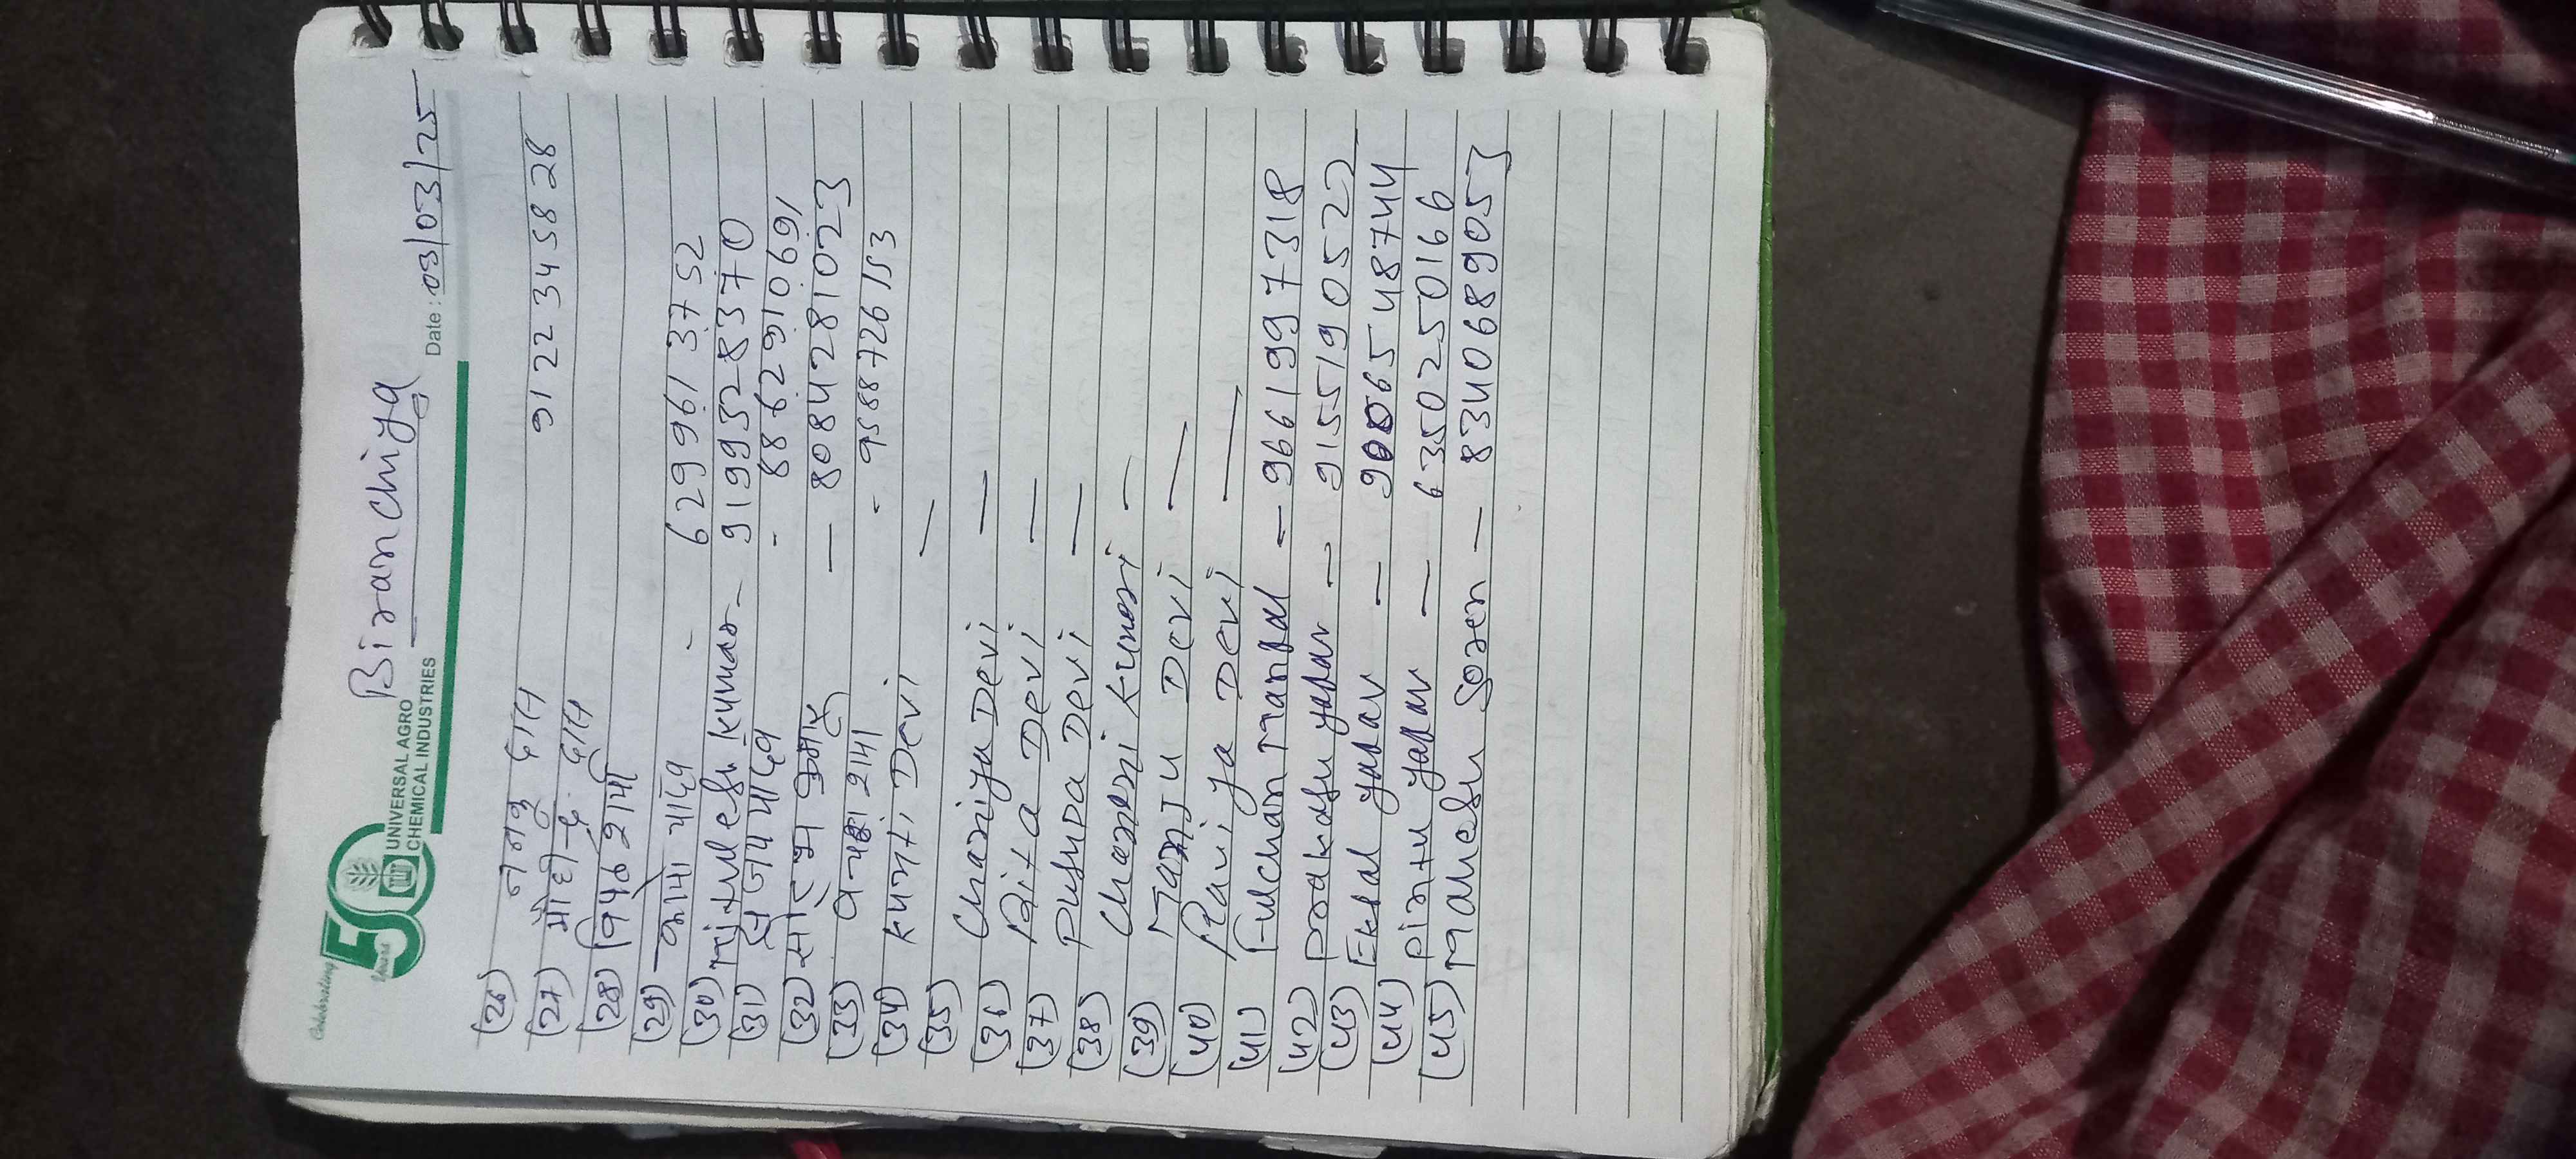 Celebrating
50
Years
UNIVERSAL AGRO
CHEMICAL INDUSTRIES
Biranchiya
Date : 03/03/25
(26) नुनु दास 9122345828
(27) मोही-दू दास
(28)
(29) 6299613752
(30) Mithlesh kumar - 9199328370
(31) संजय यादव - 8862910691
(32) - 8084281023
(33) शर्मा - 9588726153
(34) kunti Devi —
(35)
(36) Chariya Devi —
(37) Rita Devi —
(38) Pushpa Devi —
(39) Chameni kumari —
(40) Manju Devi —
(41) Raviya Devi —
Fulchan Mandal - 9661997318
(42) Prakash yadav - 9155190522
(43) Eklal yadav - 9006548744
(44) Pintu yadav - 6350250166
(45) Mahesh Soren - 8340689057